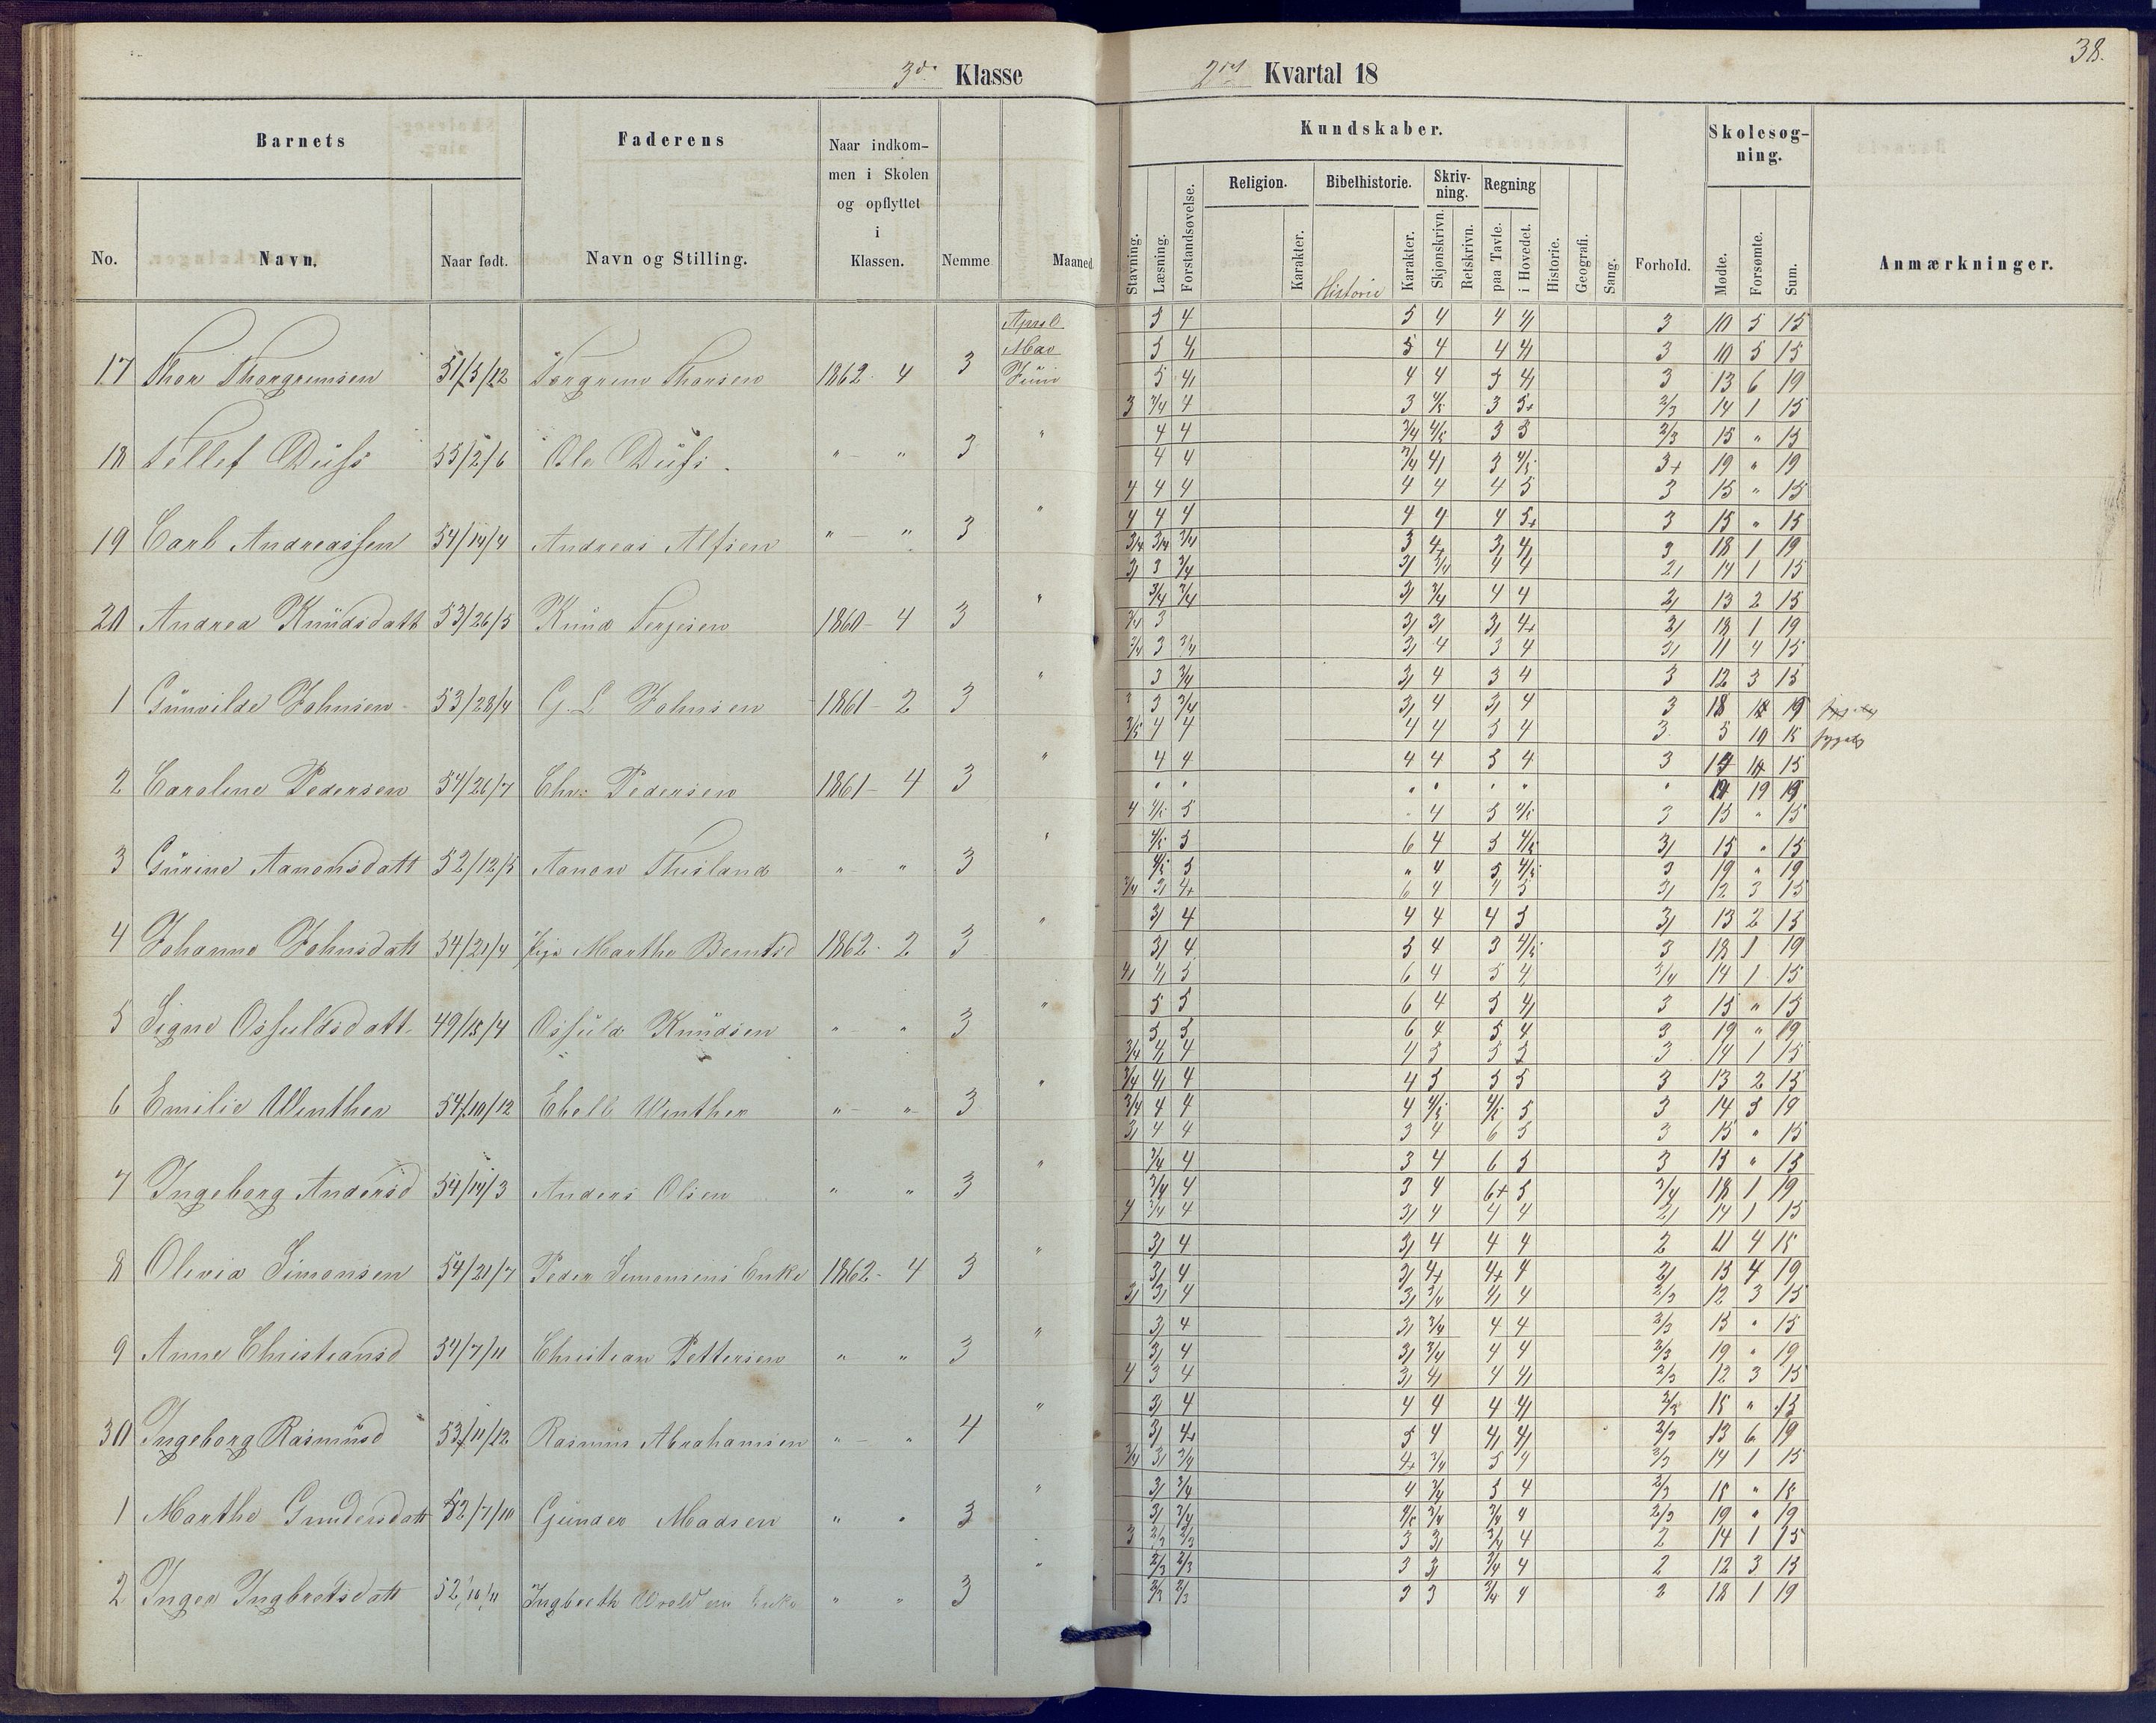 3die Klasse
2det Kvartal 18
38.
Barnets
Faderens
Naar indkom-
men i Skolen
og opflyttet
i
Klassen.
No.
Navn.
Naar født.
Navn og Stilling.
Nemme
Maaned
Kundskaber.
Skolesøg-
ning.
Religion.
Bibelhistorie.
Skriv-
ning.
Regning
Stavning.
Læsning.
Forstandsøvelse.
Karakter.
Historie
Karakter.
Skjønskrivn.
Retskrivn.
paa Tavle.
i Hovedet.
Historie.
Geografi.
Sang.
Forhold.
Mødte.
Forsømte.
Sum.
Anmærkninger.
April
5 4 5 4 4 4/ 3 10 5 15
Mai
5 4/ 5 4 4 4/ 3 10 5 15
17 Thor Thorgrimsen 51/5/12 Torgrim Thorsen 1862 - 4 3 Juni
5 4/ 4 4 5 4/ 3 13 6 19
3 3/4 4 3 4/5 3 5+ 2/3 14 1 15
4 4 3/4 4/5 3 5 2/3 15 " 15
18 Tellef Duus 55/2/6 Ole Duus " - " 3 "
4 4 3/4 4/ 3 4/5 3+ 19 " 19
4 4 4 4 4 4 5 3 15 " 15
4 4 4 4 4 4 5+ 3 15 " 15
19 Carl Andreassen 54/14/4 Andreas Alfsen " - " 3 "
3/4 3/4 3/4 3 4+ 3/ 4/ 3 18 1 19
3/ 3 3/4 3/ 3/4 4 4 2/ 14 1 15
3/4 3/4 3/ 3/4 4 4 2/ 13 2 15
20 Andrea Knudsdatt 53/26/5 Knud Terjesen 1860 - 4 3 "
3/4 3 3/ 3/ 3/ 4+ 2/ 18 1 19
3/4 3 3/4 3/ 4 3 4 3/ 11 4 15
3 3/4 3/ 4 3 4 3 12 3 15
1 Gunvilde Johnsen 53/28/4 G. L Johnsen 1861 - 2 3 "
3 3/4 3/ 4 3/ 4 3 18 19
3/5 4 4 4 4 5 4 3 5 10 15 sygelig
4 4 4 4 5 4 3 15
2 Caroline Pedersen 54/26/7 Chr: Pedersen 1861 - 4 3 "
" " " " " " " 19 19
4 4/5 5 " 4 5 4/5 3 15 " 15
4/5 5 6 4 5 4/5 3/ 15 " 15
3 Gurine Aanonsdatt 52/12/5 Aanon Thisland " - " 3 "
4/5 5 " 4 5 4/5 3 19 " 19
3/4 3/ 4+ 6 4 4 5 3/ 12 3 15
3/ 4 4 4 4 5 3/ 13 2 15
4 Johanne Johnsdatt 54/21/4 Pige Marthe Berntsd 1862 - 2 3 "
3/ 4 5 4 3 4/5 3 18 1 19
4/ 4/ 5 6 4 5 4/ 3/4 14 1 15
5 5 6 4 5 4/ 3 15 " 15
5 Signe Osfuldsdatt. 49/15/4 Osfuld Knudsen " " 3 "
5 5 6 4 5 4 3 19 " 19
3/4 4/ 4 4 5 5 5 3 14 1 15
3/4 4/ 4 4 5 5 5 3 13 2 15
6 Emilie Winther 54/10/12 Ebell Winther " - " 3 "
3/4 4 4 4 4/5 4/5 5 3 14 5 19
3/ 4 4 3 4 6 5 3 15 " 15
3/4 4 3 4 6 5 3 15 " 15
7 Ingeborg Andersd 54/14/3 Anders Olsen " " 3 "
3/4 4 3 4 6+ 5 3/4 18 1 19
4 3/4 4 3/ 4 4 4 2/ 14 1 15
3/ 4 3/ 4 4 4 2 11 4 15
8 Olevia Simonsen 54/21/7 Peder Simonsens Enke 1862 - 4 3 "
3/ 4 3/ 4+ 4+ 4 2/ 15 4 19
3/ 3/ 4 3/ 3/4 4/ 4 2/3 12 3 15
3/ 4 3/ 3/4 4 4 2/3 15 " 15
9 Anne Christiansd 54/7/11 Christian Pettersen " " 3 "
3/ 4 3/ 3/4 4 4 2/3 19 " 19
4 3 4 3/ 4/ 4 4/ 2/3 12 3 15
3/ 4 4 4 4 4/ 2/3 15 " 15
30 Ingeborg Rasmusd 53/11/12 Rasmus Abrahamsen " " 4 "
3/ 4+ 5 4 4/ 4/ 2/3 13 6 19
3/4 3/ 3/4 4+ 3/4 5 4 2/3 14 1 15
3/ 3/4 4 3/4 5 4 2/3 15 " 15
1 Marthe Gundersdatt 52/7/10 Gunder Madsen " " 3 "
3/ 3/4 4/5 3/4 3/4 4 2/3 19 " 19
3 2/3 2/3 3 3/ 3/4 4 2 14 1 15
2/3 2/3 3 3/ 3/4 4 2 12 3 15
2 Inger Ingbretsdatt 52/10/11 Ingbreth Enke " " 3 "
2/3 2/3 3 3 3/4 4 2 18 1 19